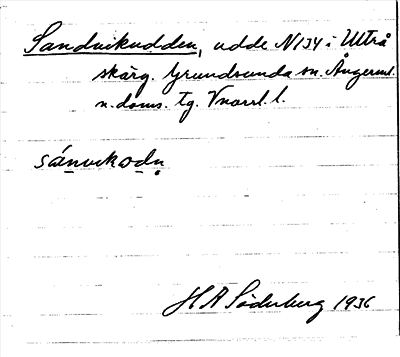 Sandvikudden, udde N134 i Ulvö
skärg. Grundsunda sn. Ångerml.
n. doms. tg. Vnorrl. l.
sánvikodn
H A Söderberg 1936